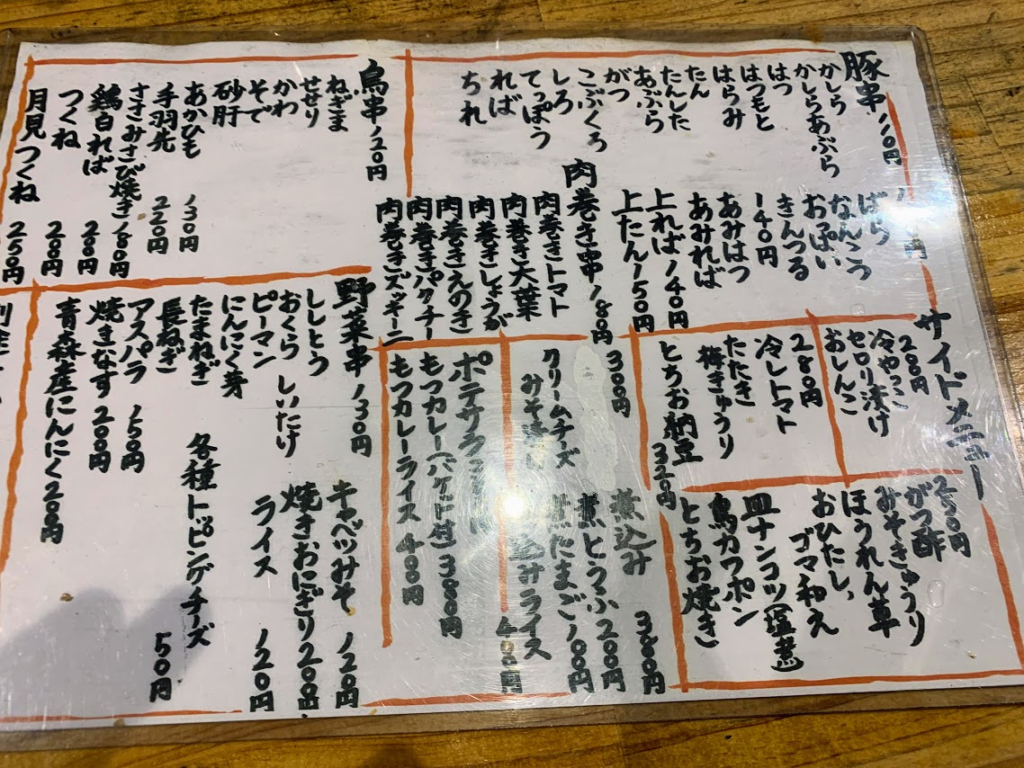 豚串 110円
かしら
かしらあぶら
はつ
はつもと
はらみ
たん
たんした
あぶら
がつ
こぶくろ
しろ
てっぽう
ればー
ちれ
円
ばら
なんこう
おっぱい
きんつる
140円
あみはつ
あみれば
上ればー140円
上たん150円
肉巻き串180円
肉巻きトマト
肉巻き大葉
肉巻きしょうが
肉巻きえのき
肉巻きパクチー
肉巻きズッキーニ
鳥串120円
ねぎま
せせり
かわ
そで
砂肝
あかひも 130円
手羽先 220円
ささみさび焼き180円
鶏白ればー 200円
つくね 200円
月見つくね 250円
サイドメニュー
200円
冷やっこ
セロリ漬け
おしんこ
280円
冷しトマト
たたき
梅きゅうり
とちお納豆 320円
300円
クリームチーズ
みそ漬け
250円
がつ酢
みそきゅうり
ほうれん草
おひたし、
ゴマ和え
皿ナンコツ(塩煮)
鳥カワポン
とちお焼き
煮込み 380円
煮とうふ200円
煮たまご100円
込みライス 400円
ポテサラ
もつカレー(バケット付)380円
もつカレーライス400円
野菜串130円
ししとう
おくら しいたけ
ピーマン
にんにく芽
たまねぎ
長ねぎ
アスパラ 150円
焼きなす200円
青森産にんにく200円
キャベツみそ 120円
焼きおにぎり200円
ライス 120円
各種トッピングチーズ
50円